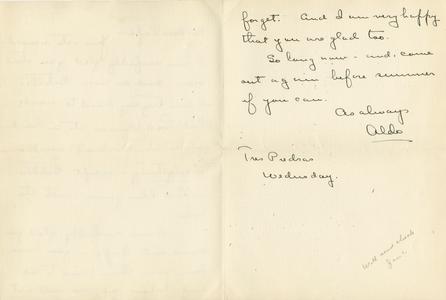 forget. And I am very happy
that you are glad too.
So long now - and, come
out again before summer
if you can.
As always
Aldo
Tres Piedras
Wednesday.
Will send check